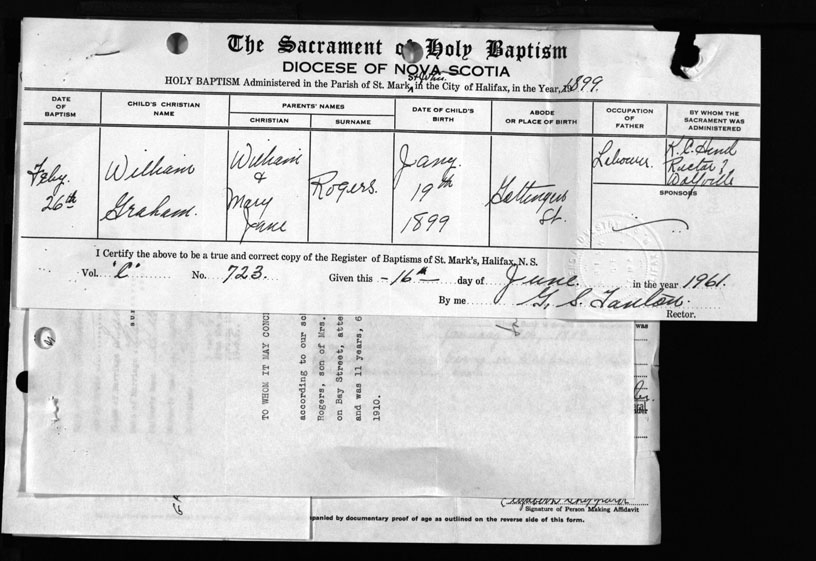 The Sacrament of Holy Baptism
DIOCESE OF NOVA SCOTIA
HOLY BAPTISM Administered in the Parish of St. Mark, in the City of Halifax, in the Year, 1899.
DATE OF BAPTISM
CHILD'S CHRISTIAN NAME
PARENTS' NAMES
CHRISTIAN
SURNAME
DATE OF CHILD'S BIRTH
ABODE OR PLACE OF BIRTH
OCCUPATION OF FATHER
BY WHOM THE SACRAMENT WAS ADMINISTERED
Feby. 26th
William Graham.
William & Mary Jane
Rogers.
Jany. 19th 1899
Gottingen St.
Labourer.
K. C. Hind Rector
SPONSORS
I Certify the above to be a true and correct copy of the Register of Baptisms of St. Mark's, Halifax, N. S.
Vol. "C" No. 723. Given this -16th- day of June. in the year 1961.
By me G. S.
Rector.
TO WHOM IT MAY CONC
according to our
Rogers, son of Mrs.
on Bay Street, atte
and was 11 years, 6
1910.
was
Signature of Person Making Affidavit
panied by documentary proof of age as outlined on the reverse side of this form.